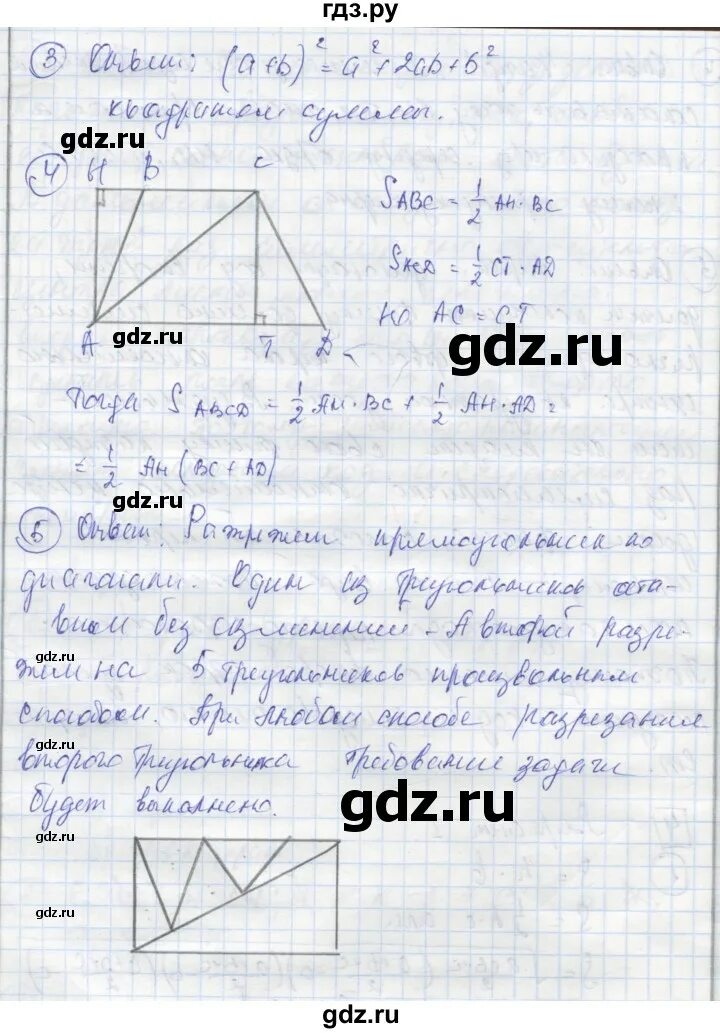 гдз.ру
③ Ответ: (a+b)² = a² + 2ab + b²
квадратом суммы.
gdz.ru
gdz.ru
④ H B C
S ABC = 1/2 AH · BC
S ACD = 1/2 CT · AD
Но AC = CT
A T D
gdz.ru
gdz.ru
Тогда S ABCD = 1/2 AH · BC + 1/2 AH · AD =
= 1/2 AH (BC + AD)
gdz.ru
gdz.ru
⑤ Ответ: Разрежем прямоугольник по
диагонали. Один из треугольников оста-
вим без изменений. А второй разре-
gdz.ru
жем на 5 треугольников произвольным
способом. При любом способе разрезания
gdz.ru
второго треугольника требование задачи
gdz.ru
будет выполнено.
gdz.ru
gdz.ru
gdz.ru
gdz.ru
gdz.ru